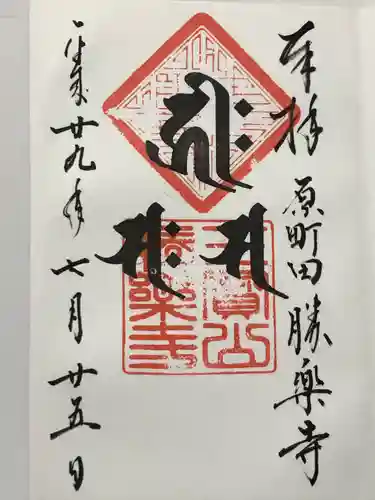 奉拝 原町田勝楽寺
𑖮𑖿𑖨𑖱𑖾
𑖭
𑖭𑖾
三寶山勝樂寺
平成廿九年七月廿五日